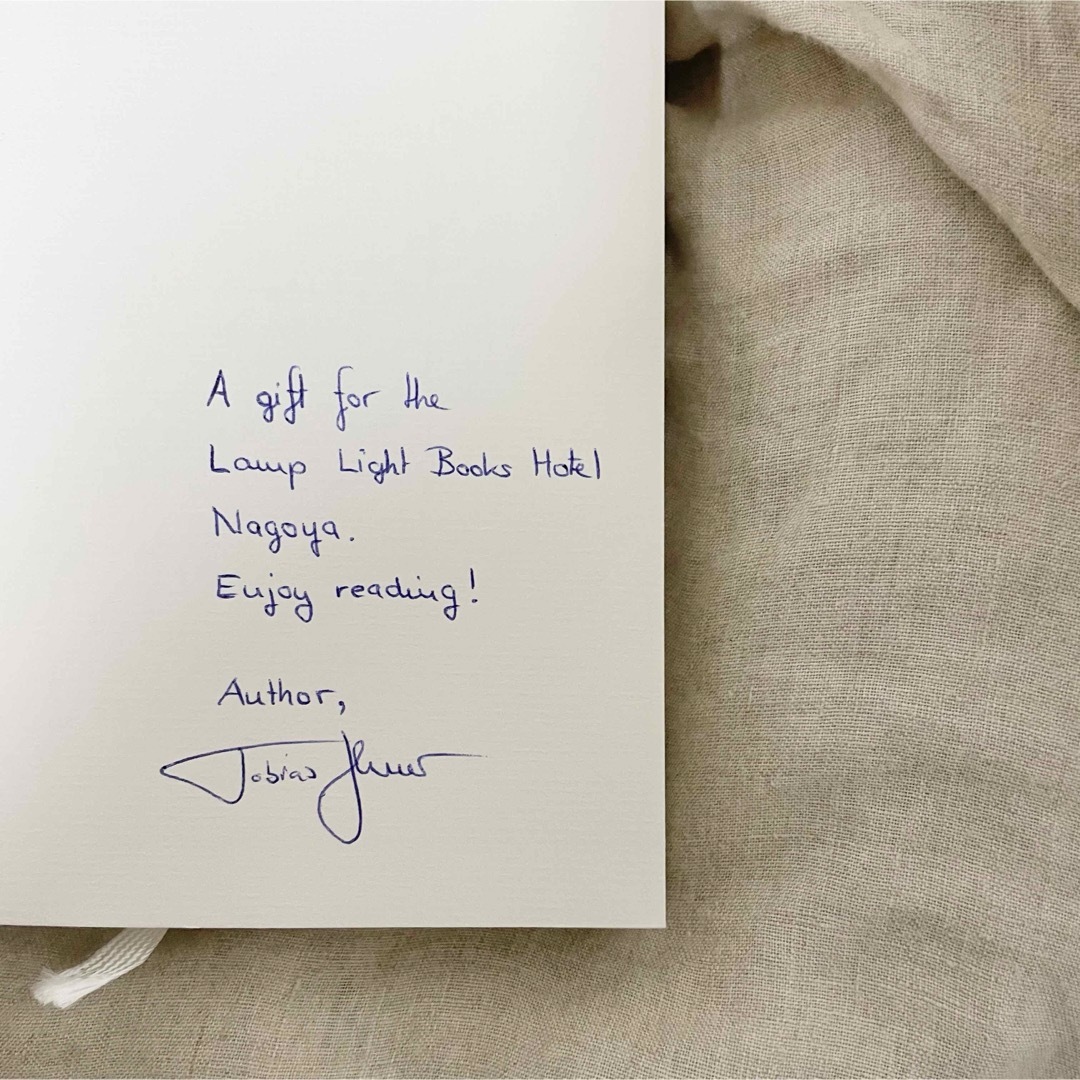 A gift for the
Lamp Light Books Hotel
Nagoya.
Enjoy reading!
Author,
Tobias